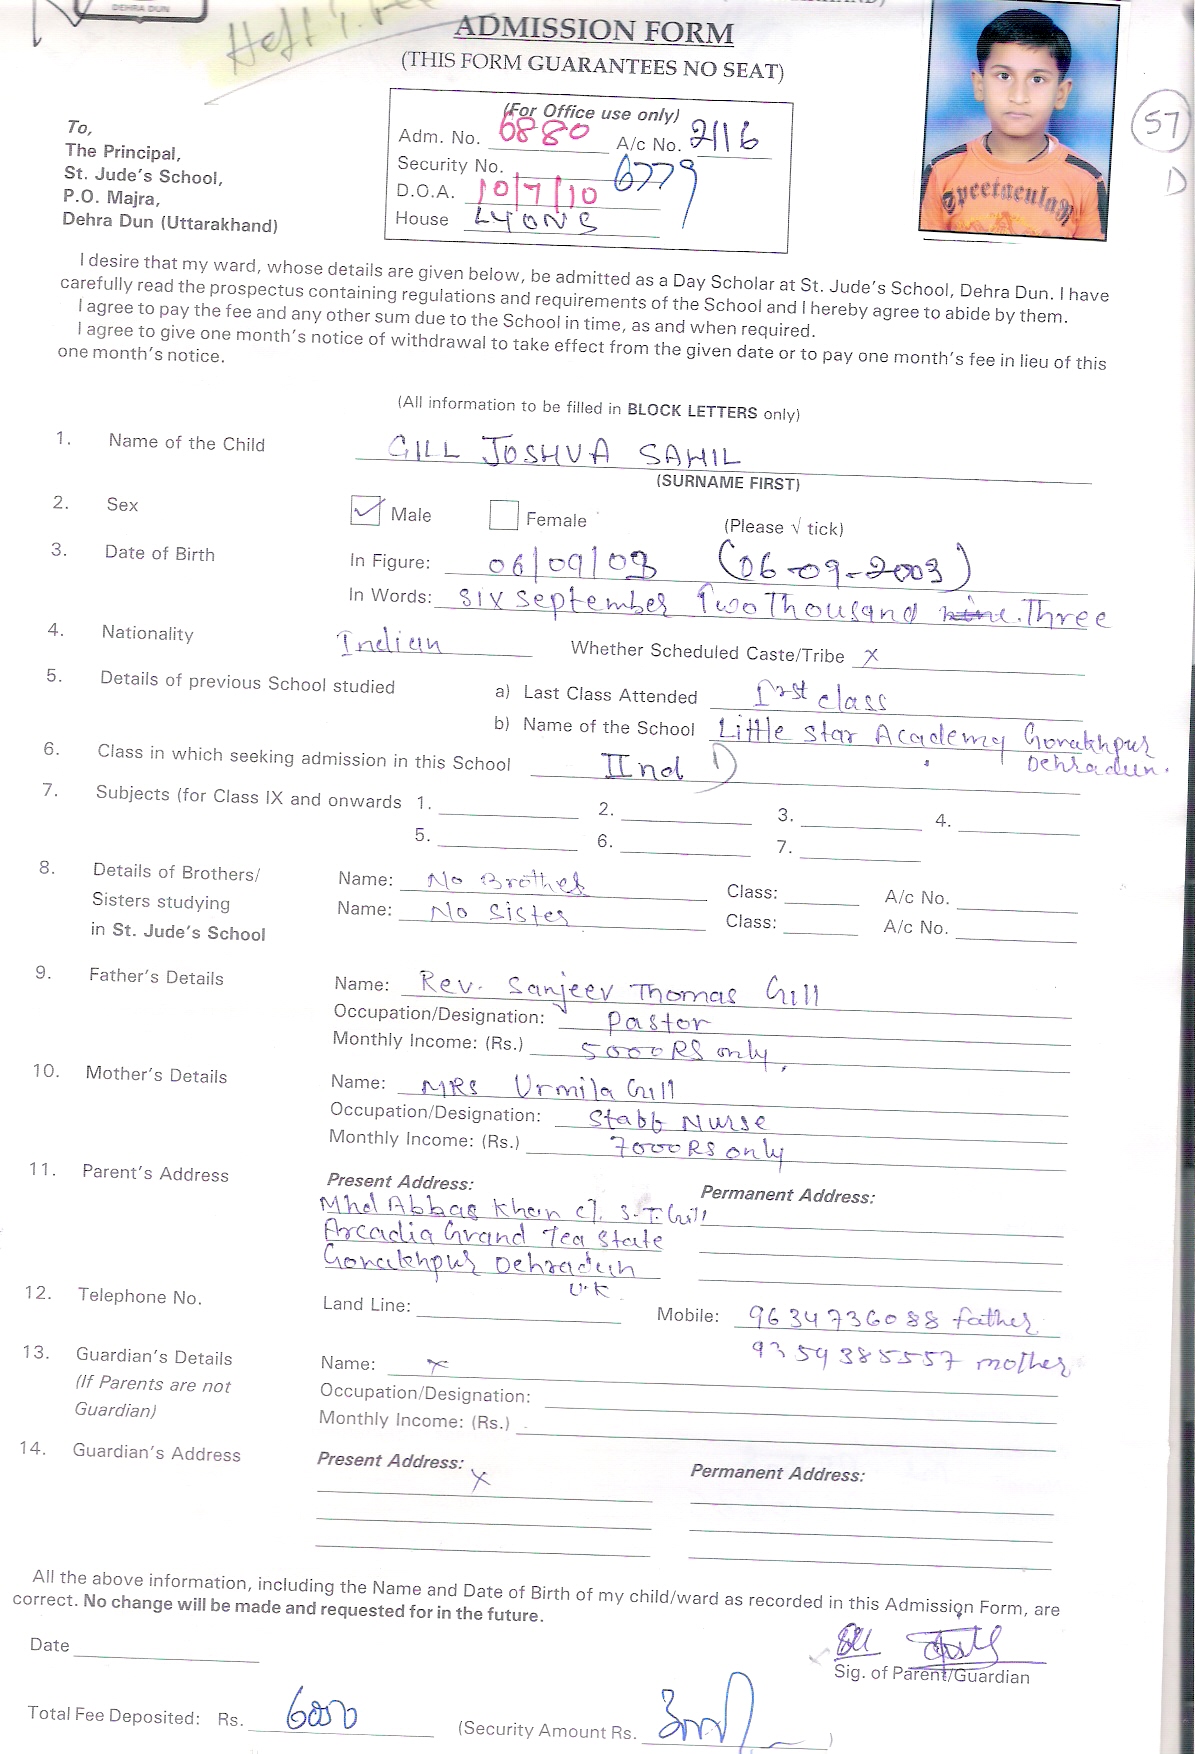 DEHRA DUN
ADMISSION FORM
(THIS FORM GUARANTEES NO SEAT)
(For Office use only)
Adm. No. 6880 A/c No. 2116
Security No. 6779
D.O.A. 10/7/10
House LYONS
57
D
To,
The Principal,
St. Jude's School,
P.O. Majra,
Dehra Dun (Uttarakhand)
I desire that my ward, whose details are given below, be admitted as a Day Scholar at St. Jude's School, Dehra Dun. I have
carefully read the prospectus containing regulations and requirements of the School and I hereby agree to abide by them.
I agree to pay the fee and any other sum due to the School in time, as and when required.
I agree to give one month's notice of withdrawal to take effect from the given date or to pay one month's fee in lieu of this
one month's notice.
(All information to be filled in BLOCK LETTERS only)
1. Name of the Child GILL JOSHUA SAHIL
(SURNAME FIRST)
2. Sex Male Female (Please √ tick)
3. Date of Birth In Figure: 06/09/03 (06-09-2003)
In Words: Six September Two Thousand nine. Three
4. Nationality Indian Whether Scheduled Caste/Tribe x
5. Details of previous School studied a) Last Class Attended Irst class
b) Name of the School Little Star Academy Gorakhpur
Dehradun.
6. Class in which seeking admission in this School IInd D
7. Subjects (for Class IX and onwards 1. 2. 3. 4.
5. 6. 7.
8. Details of Brothers/ Name: No Brother Class: A/c No.
Sisters studying Name: No Sister Class: A/c No.
in St. Jude's School
9. Father's Details Name: Rev. Sanjeev Thomas Gill
Occupation/Designation: Pastor
Monthly Income: (Rs.) 5000 RS only,
10. Mother's Details Name: MRS Urmila Gill
Occupation/Designation: Stabb Nurse
Monthly Income: (Rs.) 7000 RS only
11. Parent's Address Present Address: Permanent Address:
Mhd Abbas Khan c/. S.T. Gill
Arcadia Grand Tea State
Gorakhpur Dehradun
U.K
12. Telephone No. Land Line: Mobile: 9634736088 father
9359385557 mother
13. Guardian's Details Name: x
(If Parents are not Occupation/Designation:
Guardian) Monthly Income: (Rs.)
14. Guardian's Address Present Address: x Permanent Address:
All the above information, including the Name and Date of Birth of my child/ward as recorded in this Admission Form, are
correct. No change will be made and requested for in the future.
Date
Sig. of Parent/Guardian
Total Fee Deposited: Rs. 6000 (Security Amount Rs. )